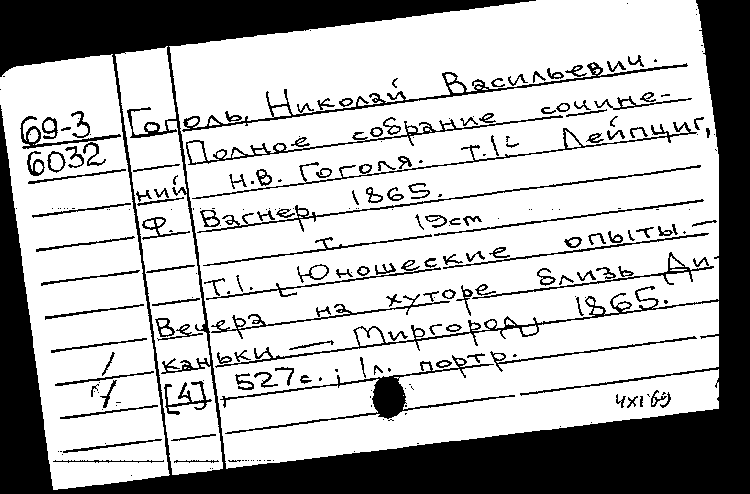 69-3
6032
Гоголь, Николай Васильевич.
Полное собрание сочине-
ний Н.В. Гоголя. Т.1- Лейпциг,
Ф. Вагнер, 1865.
т. 19см
Т.1. Юношеские опыты. —
Вечера на хуторе близь Ди-
каньки. — Миргород. 1865.
[4], 527с.; 1л. портр.
4XI69